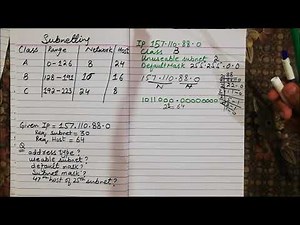 Subnetting
Class Range Network Host
A 0-126 8 24
B 128-191 16 16
C 192-223 24 8
Given IP = 157.110.88.0
Req. subnet = 30
Req. Host = 64
Q
address type?
useable subnet?
default mask?
Subnet mask?
47th host of 25th subnet?
IP 157.110.88.0
Class B
Unuseable subnet 2
Default Mask 255.255.0.0
157.110.88.0
N H